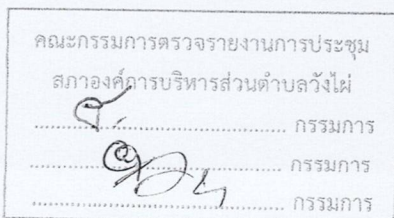 คณะกรรมการตรวจรายงานการประชุม
สภาองค์การบริหารส่วนตำบลวังไผ่
........................................ กรรมการ
........................................ กรรมการ
........................................ กรรมการ